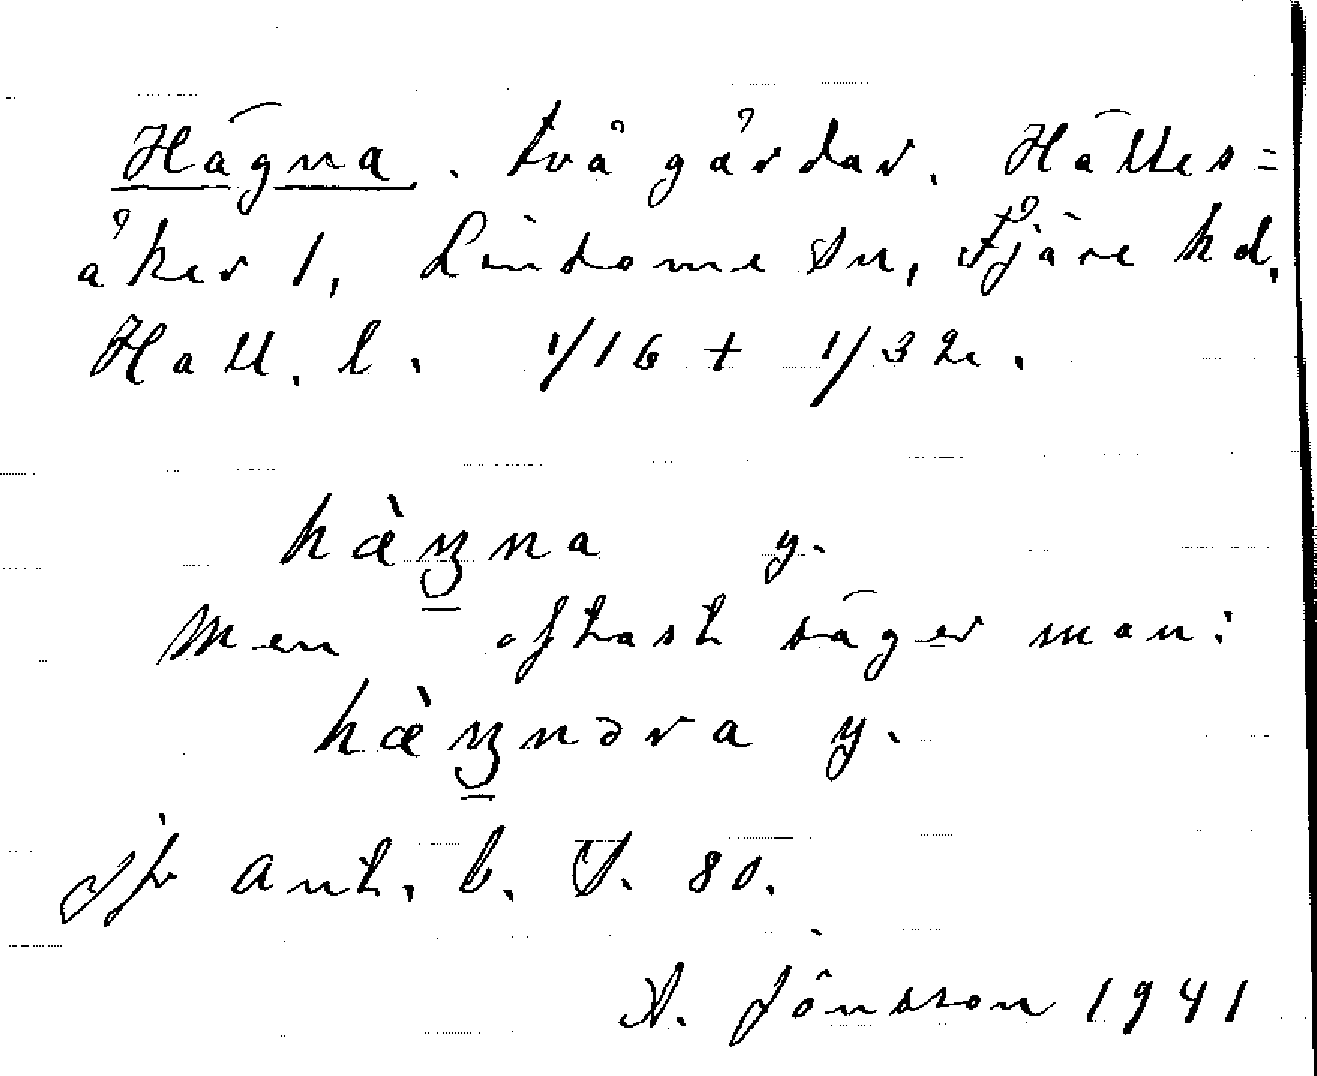 Hägna. två gårdar. Hältes=
åker 1, Lindome Sn, Fjäre hd,
Hall. l. 1/16 + 1/32.
hæ̀ŋna y.
Men oftast säger man:
hæ̀ŋnəra y.
Jfr Ant. b. S. 80.
A. Jönsson 1941